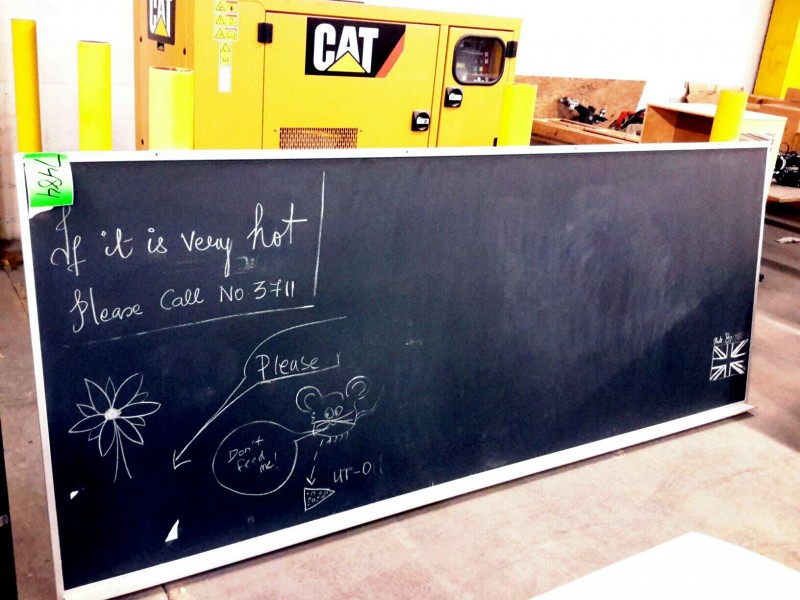 CAT
CAT
7484
If it is very hot
Please Call No. 3711
Please !
Don't
feed
me!